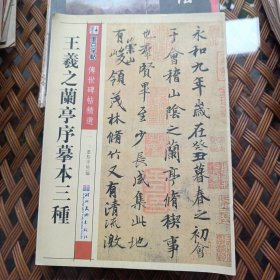 永和九年歲在癸丑暮春之初會
于會稽山陰之蘭亭脩稧事
也群賢畢至少長咸集此地
有崇山峻領茂林脩竹又有清流激
傳世碑帖精選
王羲之蘭亭序摹本三種
湖北美術出版社